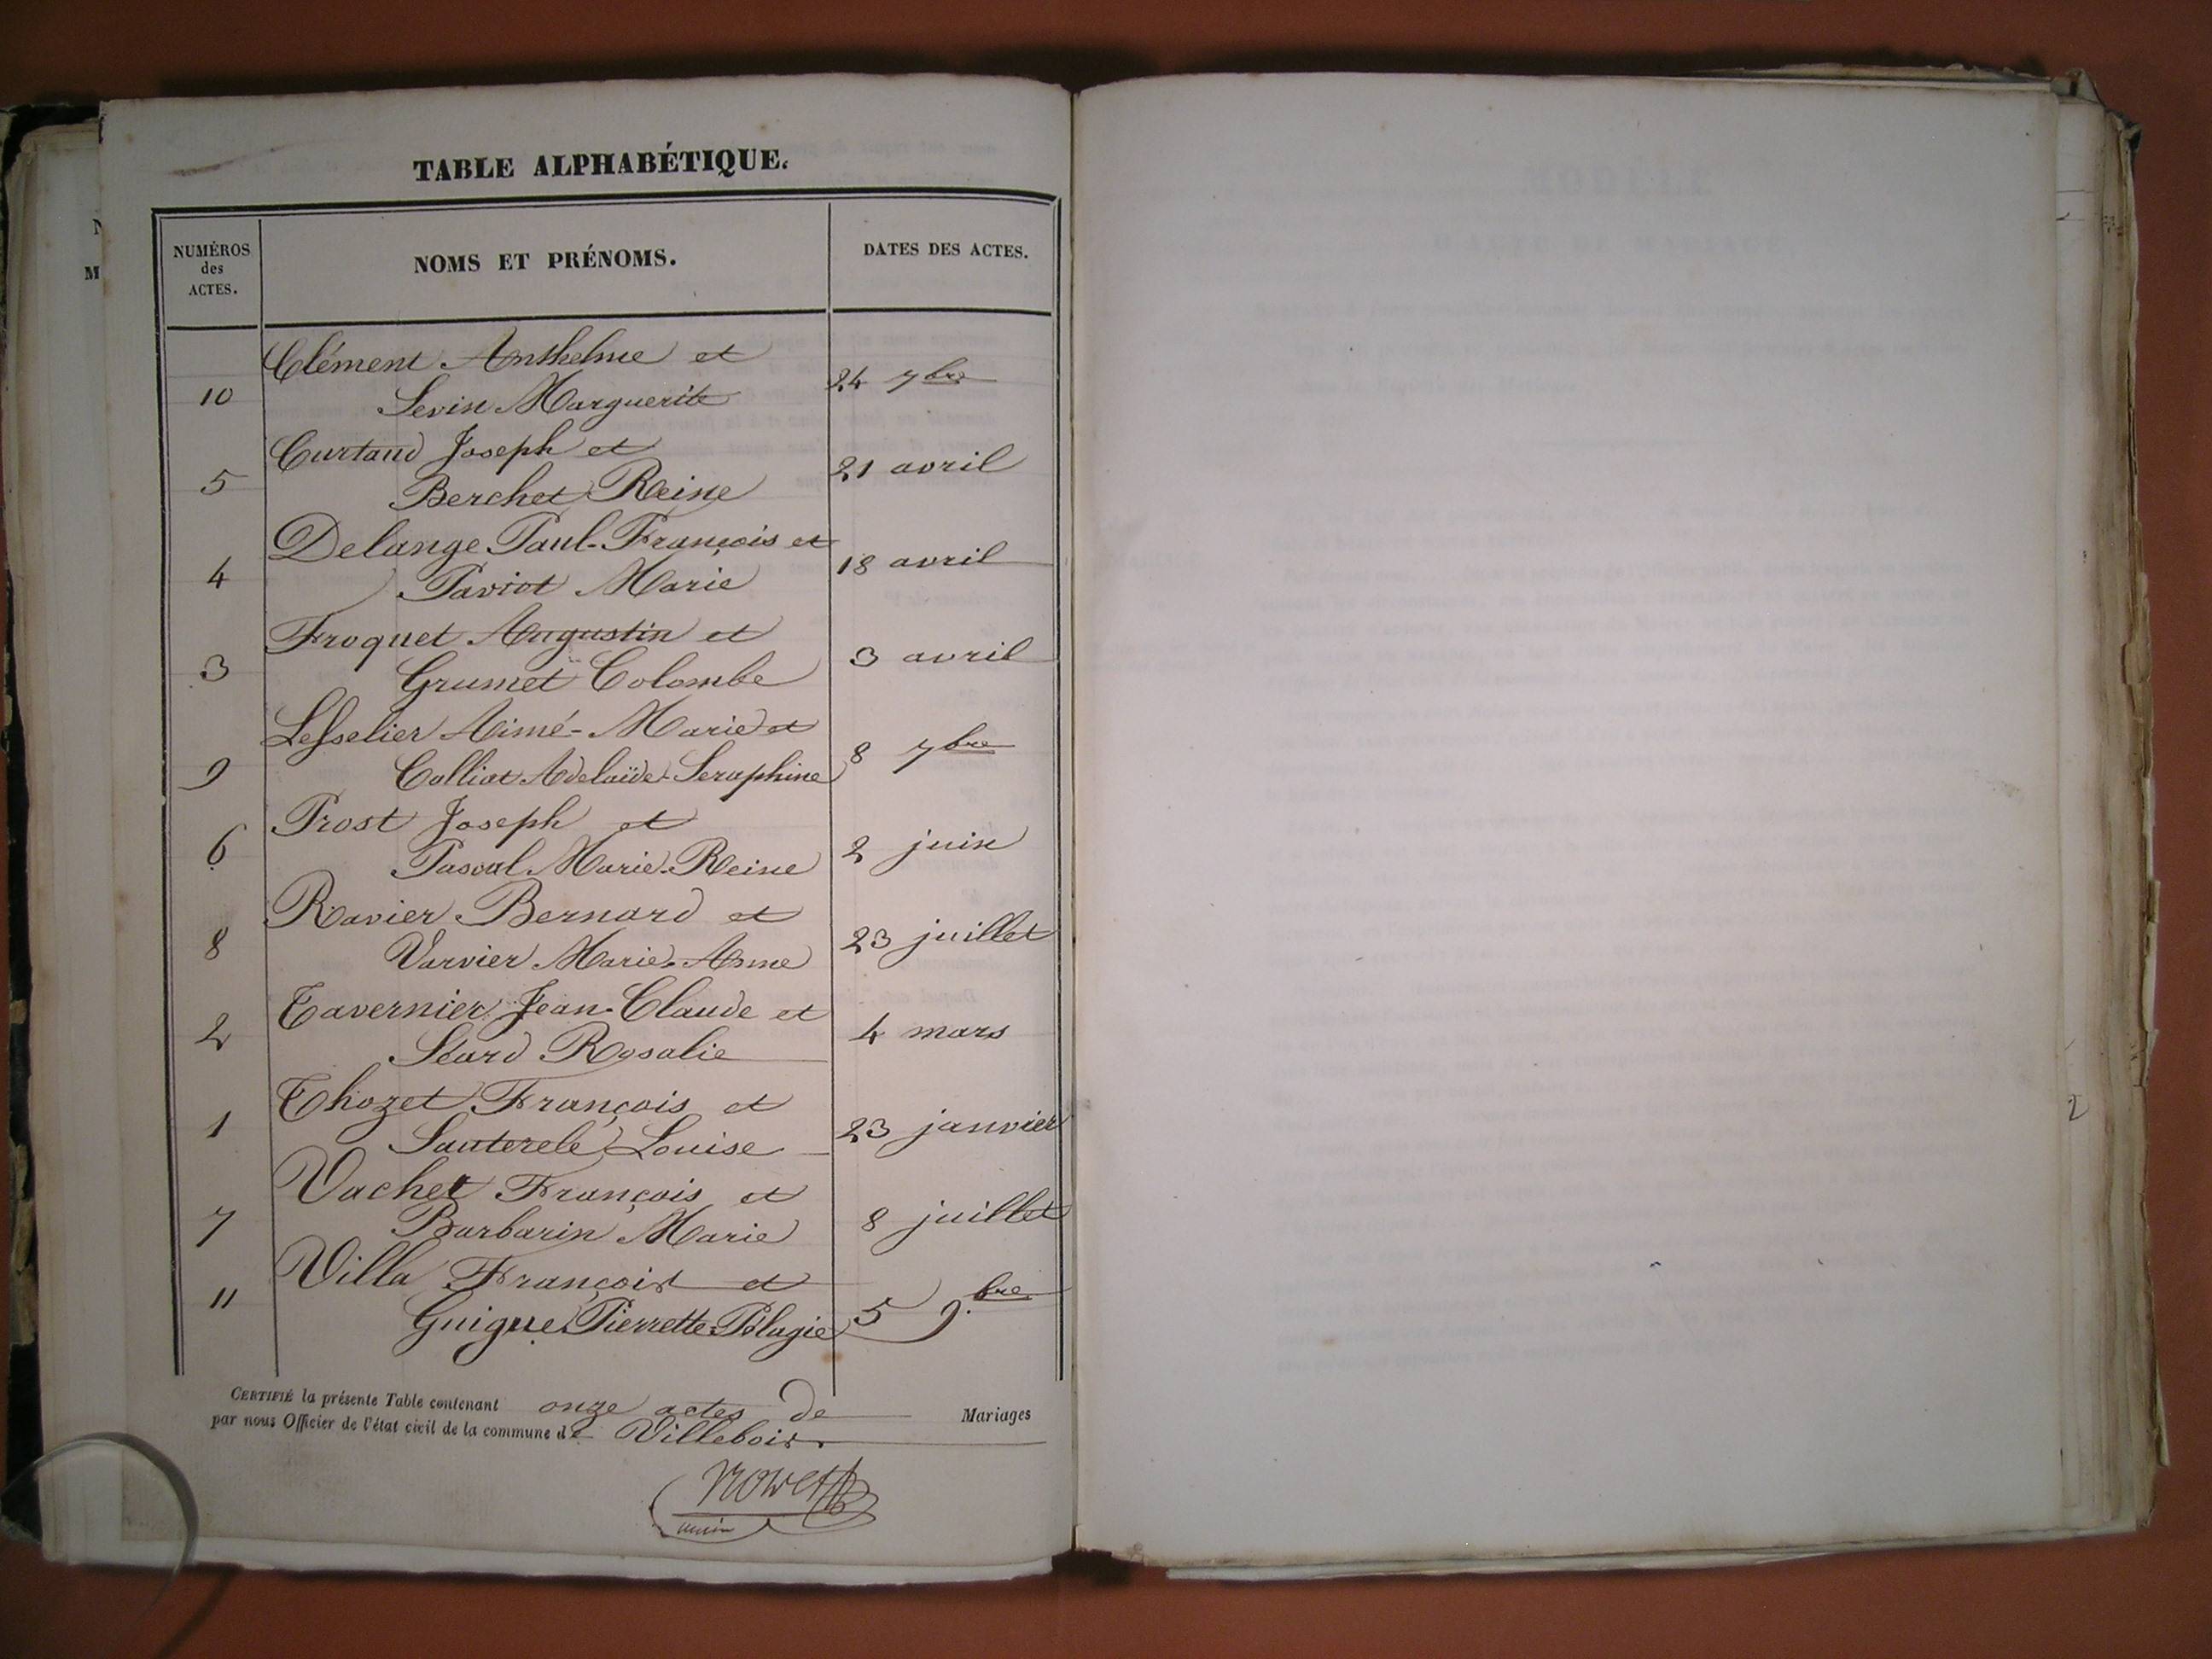 TABLE ALPHABÉTIQUE.
NUMÉROS
des
ACTES.
NOMS ET PRÉNOMS.
DATES DES ACTES.
Clément Anthelme et
10
Sevin Marguerite
24 7bre
Curtaud Joseph et
5
Berchet Reine
21 avril
Delange Paul-François et
4
Paviot Marie
18 avril
Froquet Augustin et
3
Grumet Colombe
3 avril
Lesselier Aimé-Marie et
9
Colliat Adelaïde-Seraphine
8 7bre
Prost Joseph et
6
Pascal Marie-Reine
2 juin
Ravier Bernard et
8
Varvier Marie-Anne
23 juillet
Tavernier Jean-Claude et
2
Séard Rosalie
4 mars
Thozet François et
1
Sauterele Louise
23 janvier
Vachet François et
7
Barbarin Marie
8 juillet
Villa François et
11
Guigue Pierrette Pélagie
5 9.bre
CERTIFIÉ la présente Table contenant onze actes de Mariages
par nous Officier de l'état civil de la commune de Villebois.